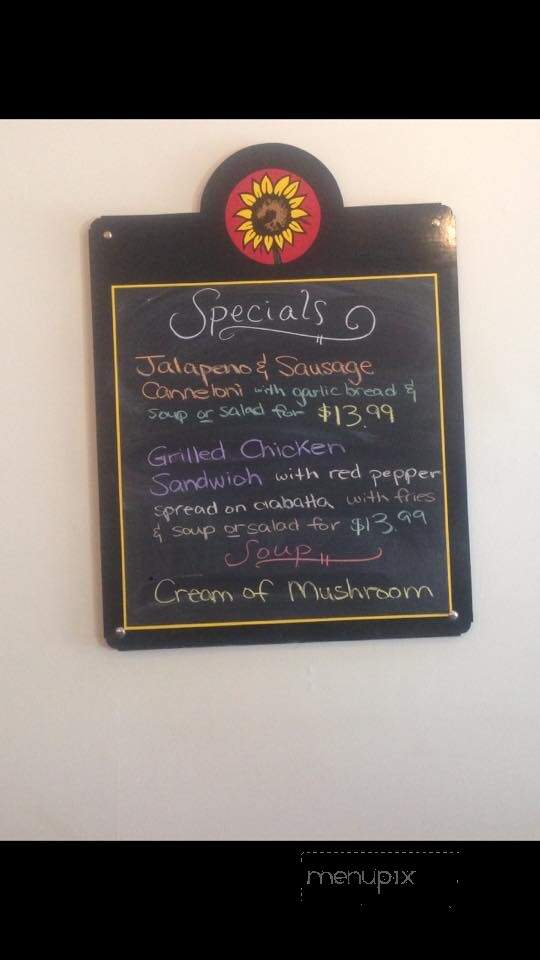 Specials
Jalapeno & Sausage
Canneloni with garlic bread &
soup or salad for $13.99
Grilled Chicken
Sandwich with red pepper
spread on ciabatta with fries
& soup or salad for $13.99
Soup
Cream of Mushroom
menupix